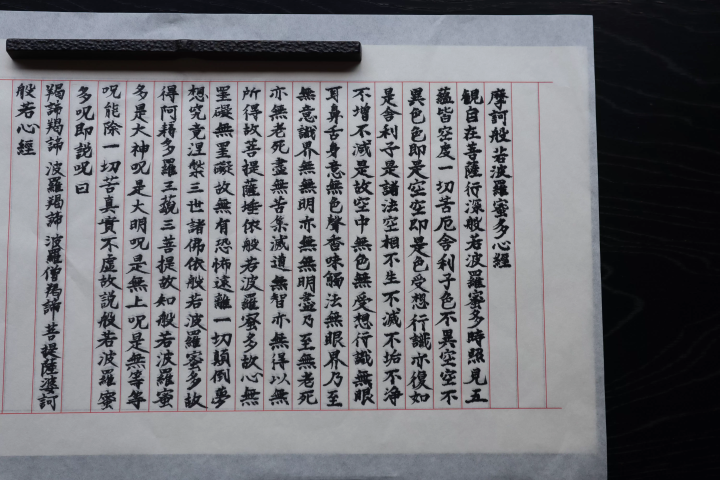 摩訶般若波羅蜜多心經
観自在菩薩行深般若波羅蜜多時照見五
蘊皆空度一切苦厄舍利子色不異空空不
異色色即是空空即是色受想行識亦復如
是舍利子是諸法空相不生不滅不垢不淨
不增不減是故空中無色無受想行識無眼
耳鼻舌身意無色聲香味觸法無眼界乃至
無意識界無無明亦無無明盡乃至無老死
亦無老死盡無苦集滅道無智亦無得以無
所得故菩提薩埵依般若波羅蜜多故心無
罣礙無罣礙故無有恐怖遠離一切顛倒夢
想究竟涅槃三世諸佛依般若波羅蜜多故
得阿耨多羅三藐三菩提故知般若波羅蜜
多是大神呪是大明呪是無上呪是無等等
呪能除一切苦真實不虛故説般若波羅蜜
多呪即説呪曰
羯諦羯諦 波羅羯諦 波羅僧羯諦 菩提薩婆訶
般若心經